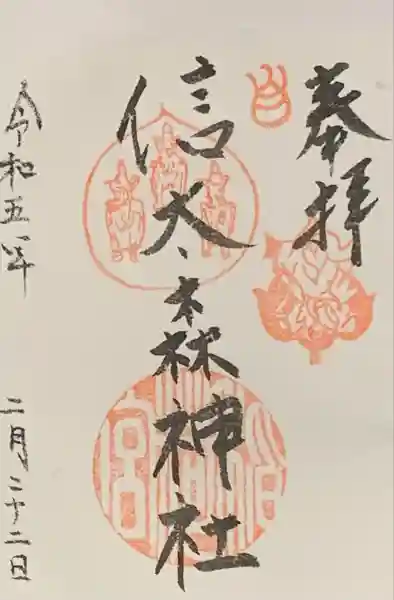 奉拝
信太森神社
令和五年 二月二十二日